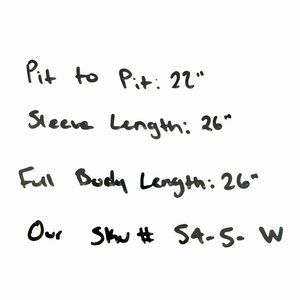 Pit to Pit: 22"
Sleeve Length: 26"
Full Body Length: 26"
Our Sku # 54-5- W